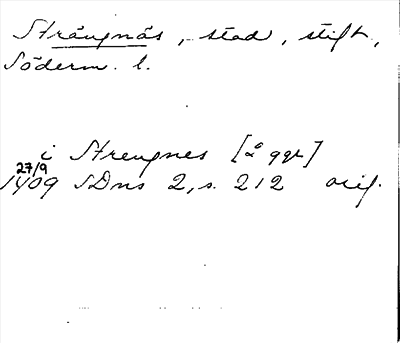 Strängnäs, stad, stift,
Söderm. l.
i Strengnes [2 ggr]
27/9
1409 SDns 2, s. 212 orig.